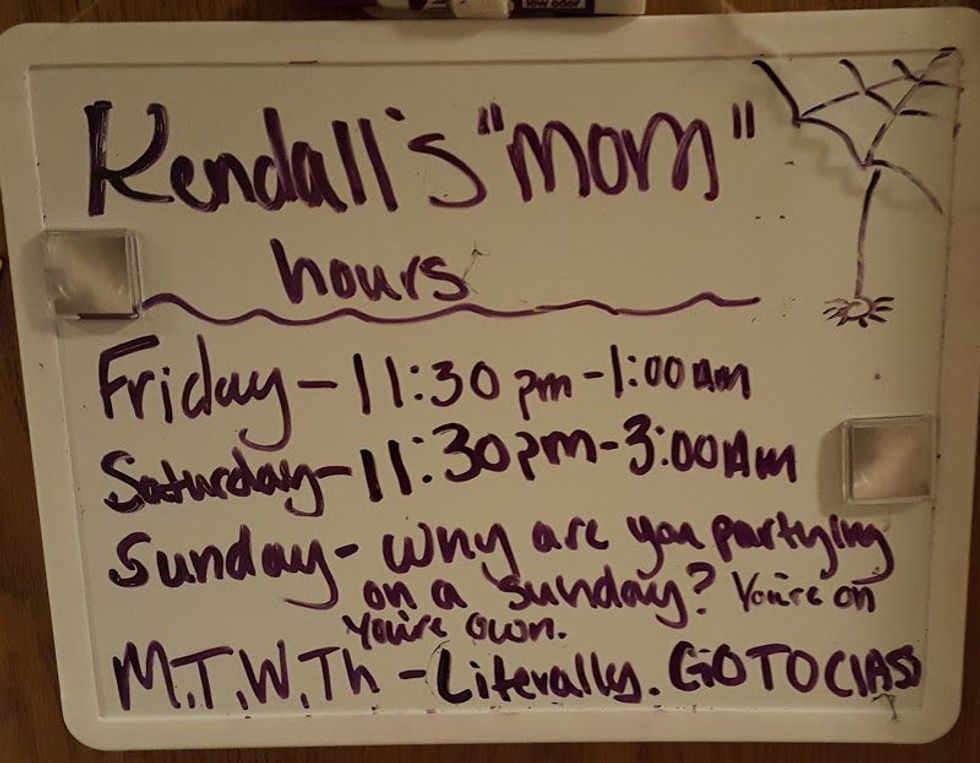 low odor
Kendall's "mom"
hours
Friday - 11:30 pm - 1:00 am
Saturday - 11:30pm - 3:00 Am
Sunday - why are you partying
on a sunday? You're on
you're own.
M.T.W.Th - Literally. GO TO ClASS